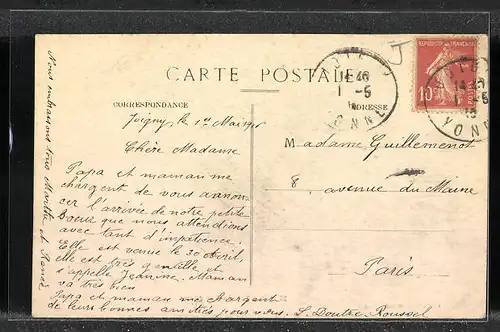 CARTE POSTALE
CORRESPONDANCE
ADRESSE
REPUBLIQUE FRANÇAISE
10
POSTES
JOIGNY
14 40
1 -5
YONNE
Joigny, le 1er Mai 1915
Chère Madame
Papa et maman me
chargent de vous annon-
cer l'arrivée de notre petite
soeur que nous attendions
avec tant d'impatience.
Elle est venue le 30 avril,
elle est très gentille et
s'appelle Jeanine. Maman
va très bien
Papa et maman me chargent
de leurs bonnes amitiés pour vous. S. Doutre-Roussel
Nous embrassons tous Marthe et René
Madame Guillemenot
8, avenue du Maine
Paris